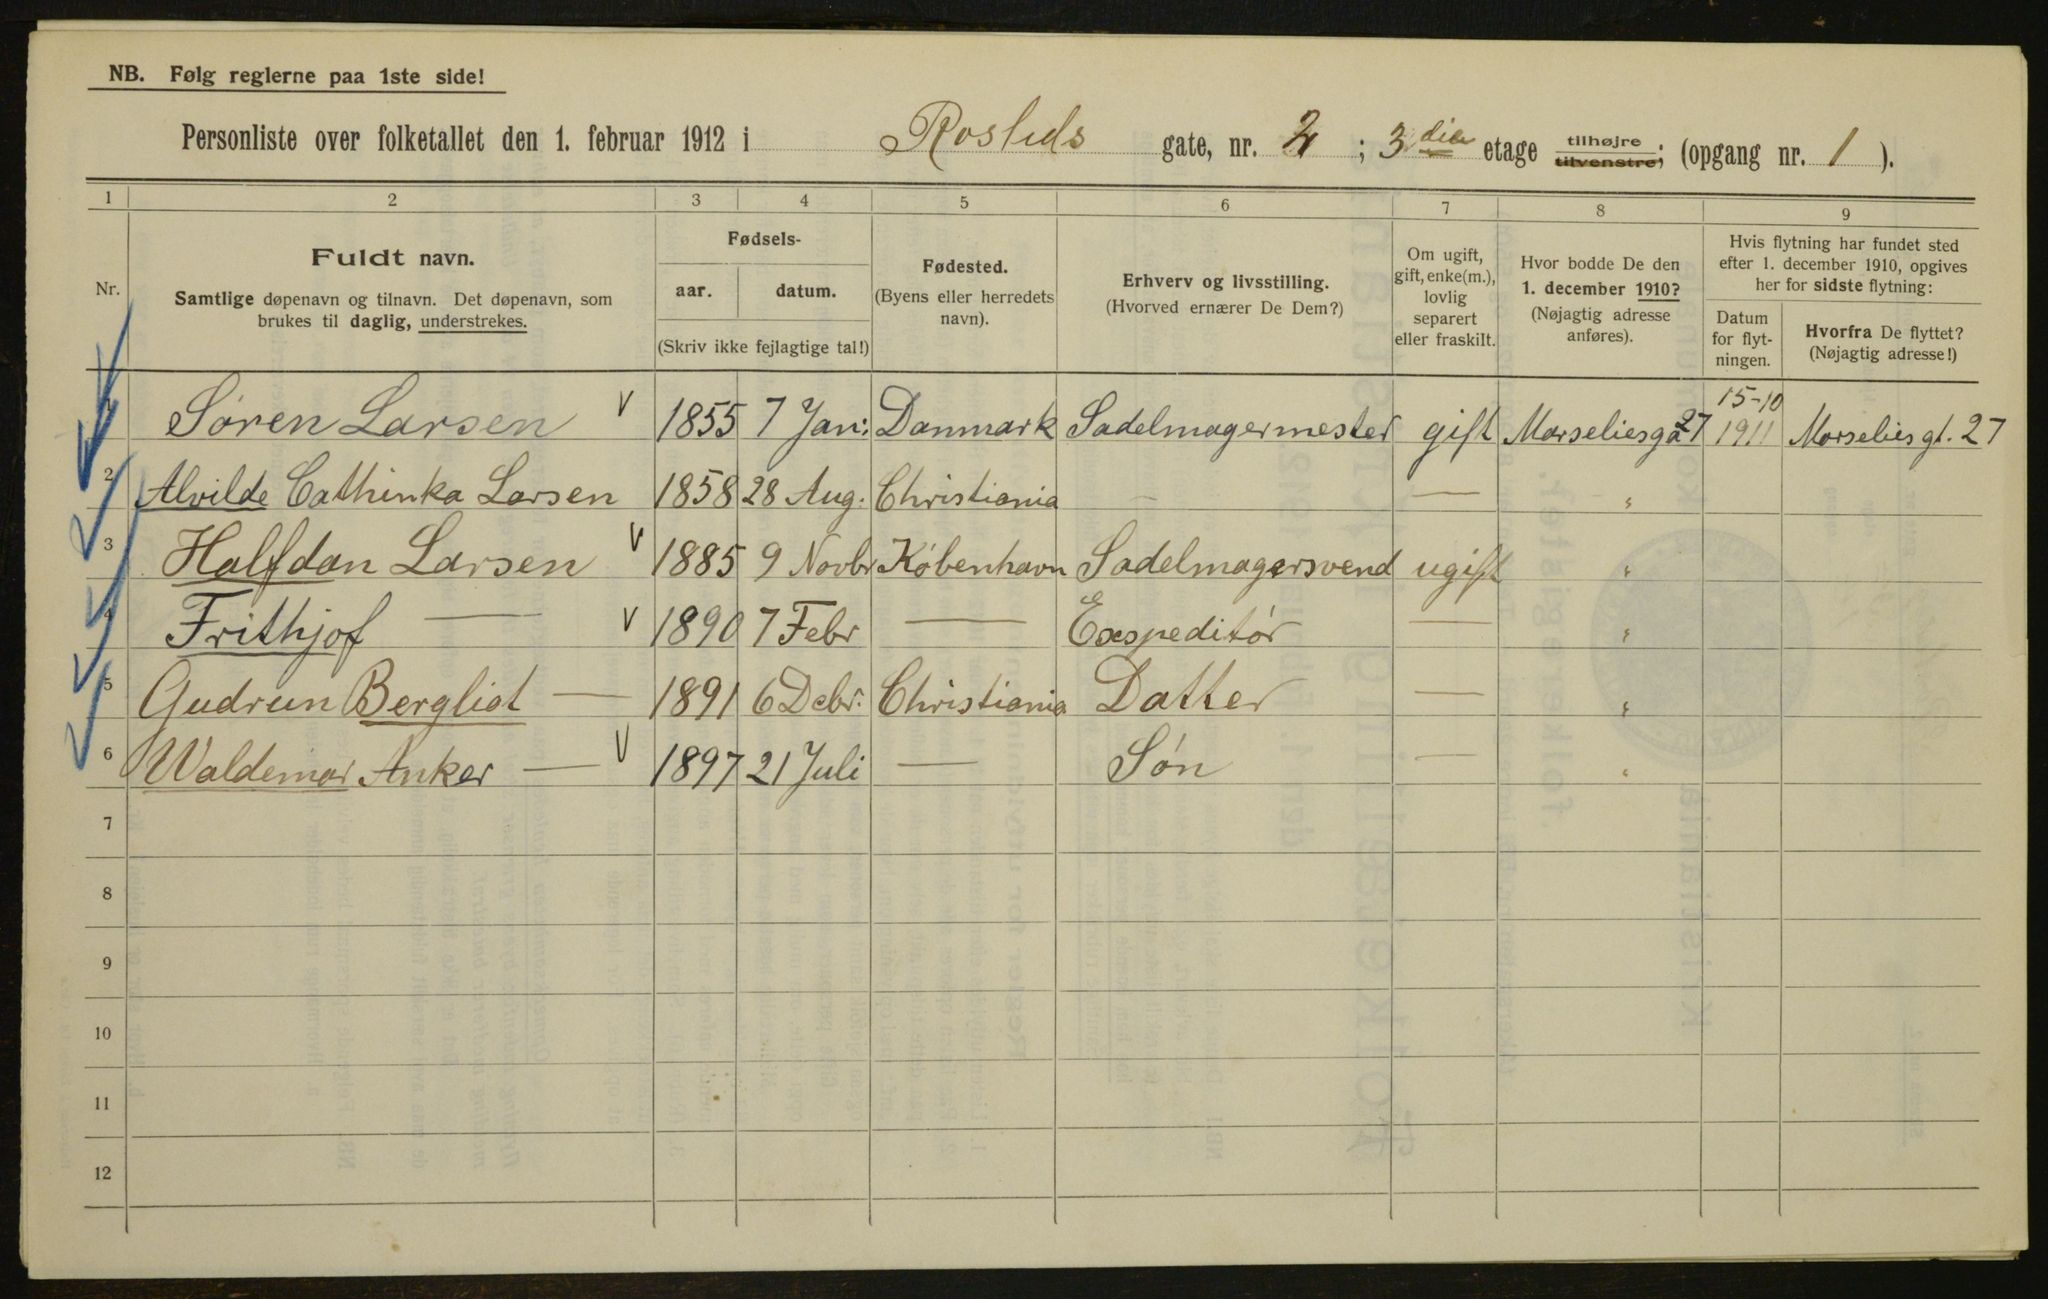 NB. Følg reglerne paa 1ste side!
Personliste over folketallet den 1. februar 1912 i Roslids gate, nr. 2 ; 3 die etage tilhøjre tilvenstre; (opgang nr. 1 ).
1 2 3 4 5 6 7 8 9
Nr.
Fuldt navn.
Samtlige døpenavn og tilnavn. Det døpenavn, som
brukes til daglig, understrekes.
Fødsels-
aar. datum.
(Skriv ikke fejlagtige tal!)
Fødested.
(Byens eller herredets
navn).
Erhverv og livsstilling.
(Hvorved ernærer De Dem?)
Om ugift,
gift, enke(m.),
lovlig
separert
eller fraskilt.
Hvor bodde De den
1. december 1910?
(Nøjagtig adresse
anføres).
Hvis flytning har fundet sted
efter 1. december 1910, opgives
her for sidste flytning:
Datum
for flyt-
ningen.
Hvorfra De flyttet?
(Nøjagtig adresse!)
1 Søren Larsen v 1855 7 Jan: Danmark Sadelmagermester gift Marseliesga 27 15-10 1911 Marselies gt. 27
2 Alvilde Cathinka Larsen 1858 28 Aug: Christiania — — "
3 Halfdan Larsen v 1885 9 Novbr København Sadelmagersvend ugift "
4 Frithjof — v 1890 7 Febr — Exspeditór — "
5 Gudrun Bergliot — 1891 6 Debr: Christiania Datter — "
6 Waldemar Anker — v 1897 21 Juli — Søn — "
7
8
9
10
11
12